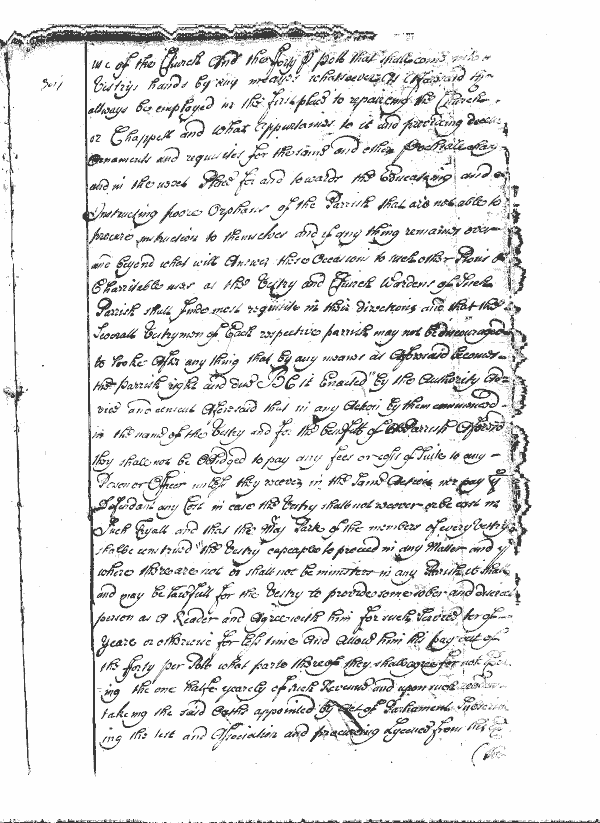 use of the Church And the forty p poll that shall come into
Vestrys hands by any meanes whatsoever As Aforesaid
always be employed in the first place to repaireing the Church
or Chappell and what appurtaines to it and provideing
Ornaments and requisites for the same and other Parochiall
and in the next Place for and towards the Educateing and
Instructing poore Orphans of the Parrish that are not able to
procure instruction to themselves and if any thing remaines over
and beyond what will Answer these Occasions to such other Pious &
Charritable uses as the Vestry and Church Wardens of Such
Parrish shall finde most requisite in their directions and that the
Severall Vestrymen of Each respective parrish may not be discouraged
to looke After any thing that by any means as Aforesaid becomes
the Parrish right and due BE it Enacted by the Authority
Advice and consent Aforesaid that in any Action by them commenced
in the name of the Vestry and for the benefitt of the Parrish Aforesaid
they shall not be Oblidged to pay any fees or cost of Suite to any
Person or Officer unless they recover in the same Action nor pay ye
Defendant any Cost in case the Vestry shall not recover or be cast in
Such Tryall and that the Major Parte of the members of every Vestry
shall be construed the Vestry capeable to proceed in any Matter and
where there are not or shall not be ministers in any Parish it shall
and may be lawfull for the Vestry to provide some sober and
person as A Reader and Agree with him for such Service for
Yeare or otherwise for less time And Allow him the pay out of
the forty per Poll what parte thereof they shall agree for not
ing the one halfe yearely of such Revenue and upon such
takeing the said Oaths appointed by Act of Parliament
ing the test and Association and procureing Lycence from the